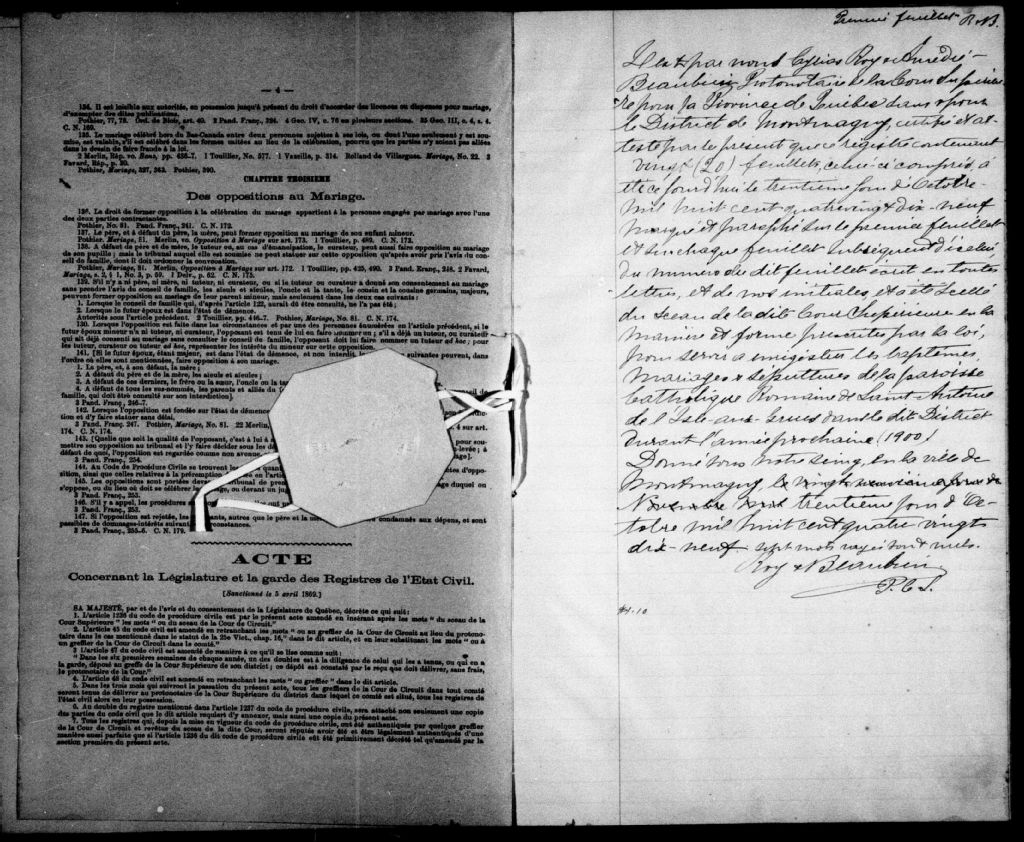 — 4 —
134. Il est loisible aux autorités, en possession jusqu'à présent du droit d'accorder des licences ou dispenses pour mariage,
d'exempter des dites publications.
Pothier, 77, 78. Ord. de Blois, art. 40. 2 Pand. Franç., 324. 4 Geo. IV, c. 76 en plusieurs sections. 35 Geo. III, c. 4, s. 4.
C. N. 169.
135. Le mariage célébré hors du Bas-Canada entre deux personnes sujettes à ses lois, ou dont l'une seulement y est sou-
mise, est valable, s'il est célébré dans les formes usitées au lieu de la célébration, pourvu que les parties n'y soient pas allées
dans le dessein de faire fraude à la loi.
2 Merlin, Rép. vo. Bans, pp. 455-7. 1 Toullier, No. 577. 1 Vazeille, p. 314. Rolland de Villargues. Mariage, No. 22. 3
Favard, Rép., p. 30.
Pothier, Mariage, 327, 363. Pothier, 390.
CHAPITRE TROISIEME
Des oppositions au Mariage.
136. Le droit de former opposition à la célébration du mariage appartient à la personne engagée par mariage avec l'une
des deux parties contractantes.
Pothier, No. 81. Pand. Franç., 241. C. N. 172.
137. Le père, et à défaut du père, la mère, peut former opposition au mariage de son enfant mineur.
Pothier, Mariage, 81. Merlin, vo. Opposition à Mariage sur art. 173. 1 Toullier, p. 489. C. N. 173.
138. A défaut de père et de mère, le tuteur où, au cas d'émancipation, le curateur, peut aussi faire opposition au mariage
de son pupille; mais le tribunal auquel elle est soumise ne peut statuer sur cette opposition qu'après avoir pris l'avis du con-
seil de famille, dont il doit ordonner la convocation.
Pothier, Mariage, 81. Merlin, Opposition à Mariage sur art. 172. 1 Toullier, pp. 425, 490. 3 Pand. Franç., 248. 2 Favard,
Mariage, s. 2, § 1, No. 3, p. 59. 1 Delv., p. 62. C. N. 175.
139. S'il n'y a ni père, ni mère, ni tuteur, ni curateur, ou si le tuteur ou curateur a donné son consentement au mariage
sans prendre l'avis du conseil de famille, les aïeuls et aïeules, l'oncle et la tante, le cousin et la cousine germains, majeurs,
peuvent former opposition au mariage de leur parent mineur, mais seulement dans les deux cas suivants:
1. Lorsque le conseil de famille qui, d'après l'article 122, aurait dû être consulté, ne l'a pas été;
2. Lorsque le futur époux est dans l'état de démence.
Autorités sous l'article précédent. 2 Toullier, pp. 446-7. Pothier, Mariage, No. 81. C. N. 174.
130. Lorsque l'opposition est faite dans les circonstances et par une des personnes énumérées en l'article précédent, si le
futur époux mineur n'a ni tuteur, ni curateur, l'opposant est tenu de lui en faire nommer un; s'il a déjà un tuteur, ou curateur
qui ait déjà consenti au mariage sans consulter le conseil de famille, l'opposant doit lui faire nommer un tuteur ad hoc; pour
les tuteur, curateur ou tuteur ad hoc, représenter les intérêts du mineur sur cette opposition.
141. [Si le futur époux, étant majeur, est dans l'état de démence, et non interdit, les suivantes peuvent, dans
l'ordre où elles sont mentionnées, faire opposition à son mariage.
1. Le père, et, à son défaut, la mère;
2. A défaut du père et de la mère, les aïeuls et aïeules;
3. A défaut de ces derniers, le frère ou la sœur, l'oncle ou la
4. A défaut de tous les sus-nommés, les parents et alliés du
famille, qui doit être consulté sur son interdiction].
3 Pand. Franç., 246-7.
142. Lorsque l'opposition est fondée sur l'état de démence
tion et d'y faire statuer sans délai.
3 Pand. Franç. 247. Pothier, Mariage, No. 81. 22 Merlin, 4 sur art.
174. C. N. 174.
143. [Quelle que soit la qualité de l'opposant, c'est à lui à pour sou-
mettre son opposition au tribunal et l'y faire décider sous les
défaut de quoi, l'opposition est regardée comme non avenue
3 Pand. Franç., 254.
144. Au Code de Procédure Civile se trouvent les d'oppo-
sition, ainsi que celles relatives à la péremption
145. Les oppositions sont portées devant le tribunal de duquel on
s'oppose, ou du lieu où doit se célébrer le mariage, ou devant un
3 Pand. Franç., 253.
146. S'il y a appel, les procédures
3 Pand. Franç., 253.
147. Si l'opposition est rejetée, les autres que le père et la condamnés aux dépens, et sont
passibles de dommages-intérêts suivant circonstances.
3 Pand. Franç., 255-6. C. N. 179.
ACTE
Concernant la Législature et la garde des Registres de l'Etat Civil.
[Sanctionné le 5 avril 1869.]
SA MAJESTÉ, par et de l'avis et du consentement de la Législature de Québec, décrète ce qui suit:
1. L'article 1236 du code de procédure civile est par le présent acte amendé en insérant après les mots "du sceau de la
Cour Supérieure" les mots "ou du sceau de la Cour de Circuit."
2. L'article 45 du code civil est amendé en retranchant les mots "ou au greffier de la Cour de Circuit au lieu du protono-
taire dans le cas mentionné dans le statut de la 25e Vict., chap. 16," dans le dit article, et en leur substituant les mots "ou à
un greffier de la Cour de Circuit dans le comté."
3 L'article 47 du code civil est amendé de manière à ce qu'il se lise comme suit:
"Dans les six premières semaines de chaque année, un des doubles est à la diligence de celui qui les a tenus, ou qui en a
la garde, déposé au greffe de la Cour Supérieure de son district; ce dépôt est constaté par le reçu que doit délivrer, sans frais,
le protonotaire de la Cour."
4. L'article 48 du code civil est amendé en retranchant les mots "ou greffier" dans le dit article.
5. Dans les trois mois qui suivront la passation du présent acte, tous les greffiers de la Cour de Circuit dans tout comté
seront tenus de délivrer au protonotaire de la Cour Supérieure du district dans lequel ce comté est situé, tous les registres de
l'état civil alors en leur possession.
6. Au double du registre mentionné dans l'article 1237 du code de procédure civile, sera attaché non seulement une copie
des parties du code civil que le dit article requiert d'y annexer, mais aussi une copie du présent acte.
7. Tous les registres qui, depuis la mise en vigueur du code de procédure civile, ont été authentiqués par quelque greffier
de la Cour de Circuit et revêtus du sceau de la dite Cour, seront réputés avoir été et être légalement authentiqués d'une
manière aussi parfaite que si l'article 1236 du dit code de procédure civile eût été primitivement décrété tel qu'amendé par la
section première du présent acte.
Premier feuillet R & B.
par nous Cyprias Roy & Amédé-
Beaubien Protonotaire de la Cour Supérieu-
re pour la Province de Québec dans & pour
le District de Montmagny, certifié et at-
testé par le présent que ce régistre contenant
vingt (20) feuillets, celui-ci compris, à
été ce jourd'hui le trentième jour d'Octobre
mil huit cent quatrevingt & dix-neuf
marqué et paraphé sur le premier feuillet
et sur chaque feuillet subséquent d'icelui,
du numero du dit feuillet écrit en toutes
lettres, et de nos initiales, et a été scellé
du Sceau de la dite Cour Supérieure en la
manière et forme prescrites par la loi,
pour servir a enregistrer les baptêmes,
mariages & sépultures de la paroisse
Catholique Romaine de Saint-Antoine
de l'Isle-aux-Grues dans le dit District
durant l'année prochaine (1900)
Donné sous notre seing, en la ville de
Montmagny, le vingt
Novembre mil trentieme jour d'Oc-
tobre mil huit cent quatre-vingt
dix-neuf sept mots rayés sont nuls.
Roy & Beaubien
P. C. S.
#4.10